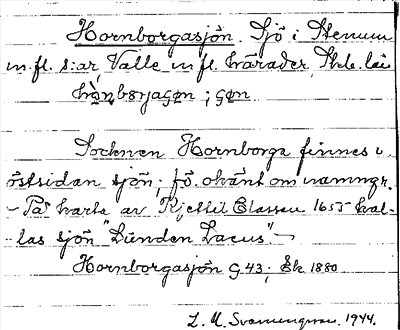 Hornborgasjön. Sjö i Stenum
m. fl. s:ar, Valle m. fl. härader, Skb. län
; gøn
Socknen Hornborga finnes v.
östsidan sjön; fö. okänt om namngr.
- På karta av Kjettil Classon 1655 kal-
las sjön "Lünden Lacus". -
Hornborgasjön G 43; Ek 1880.
1944.